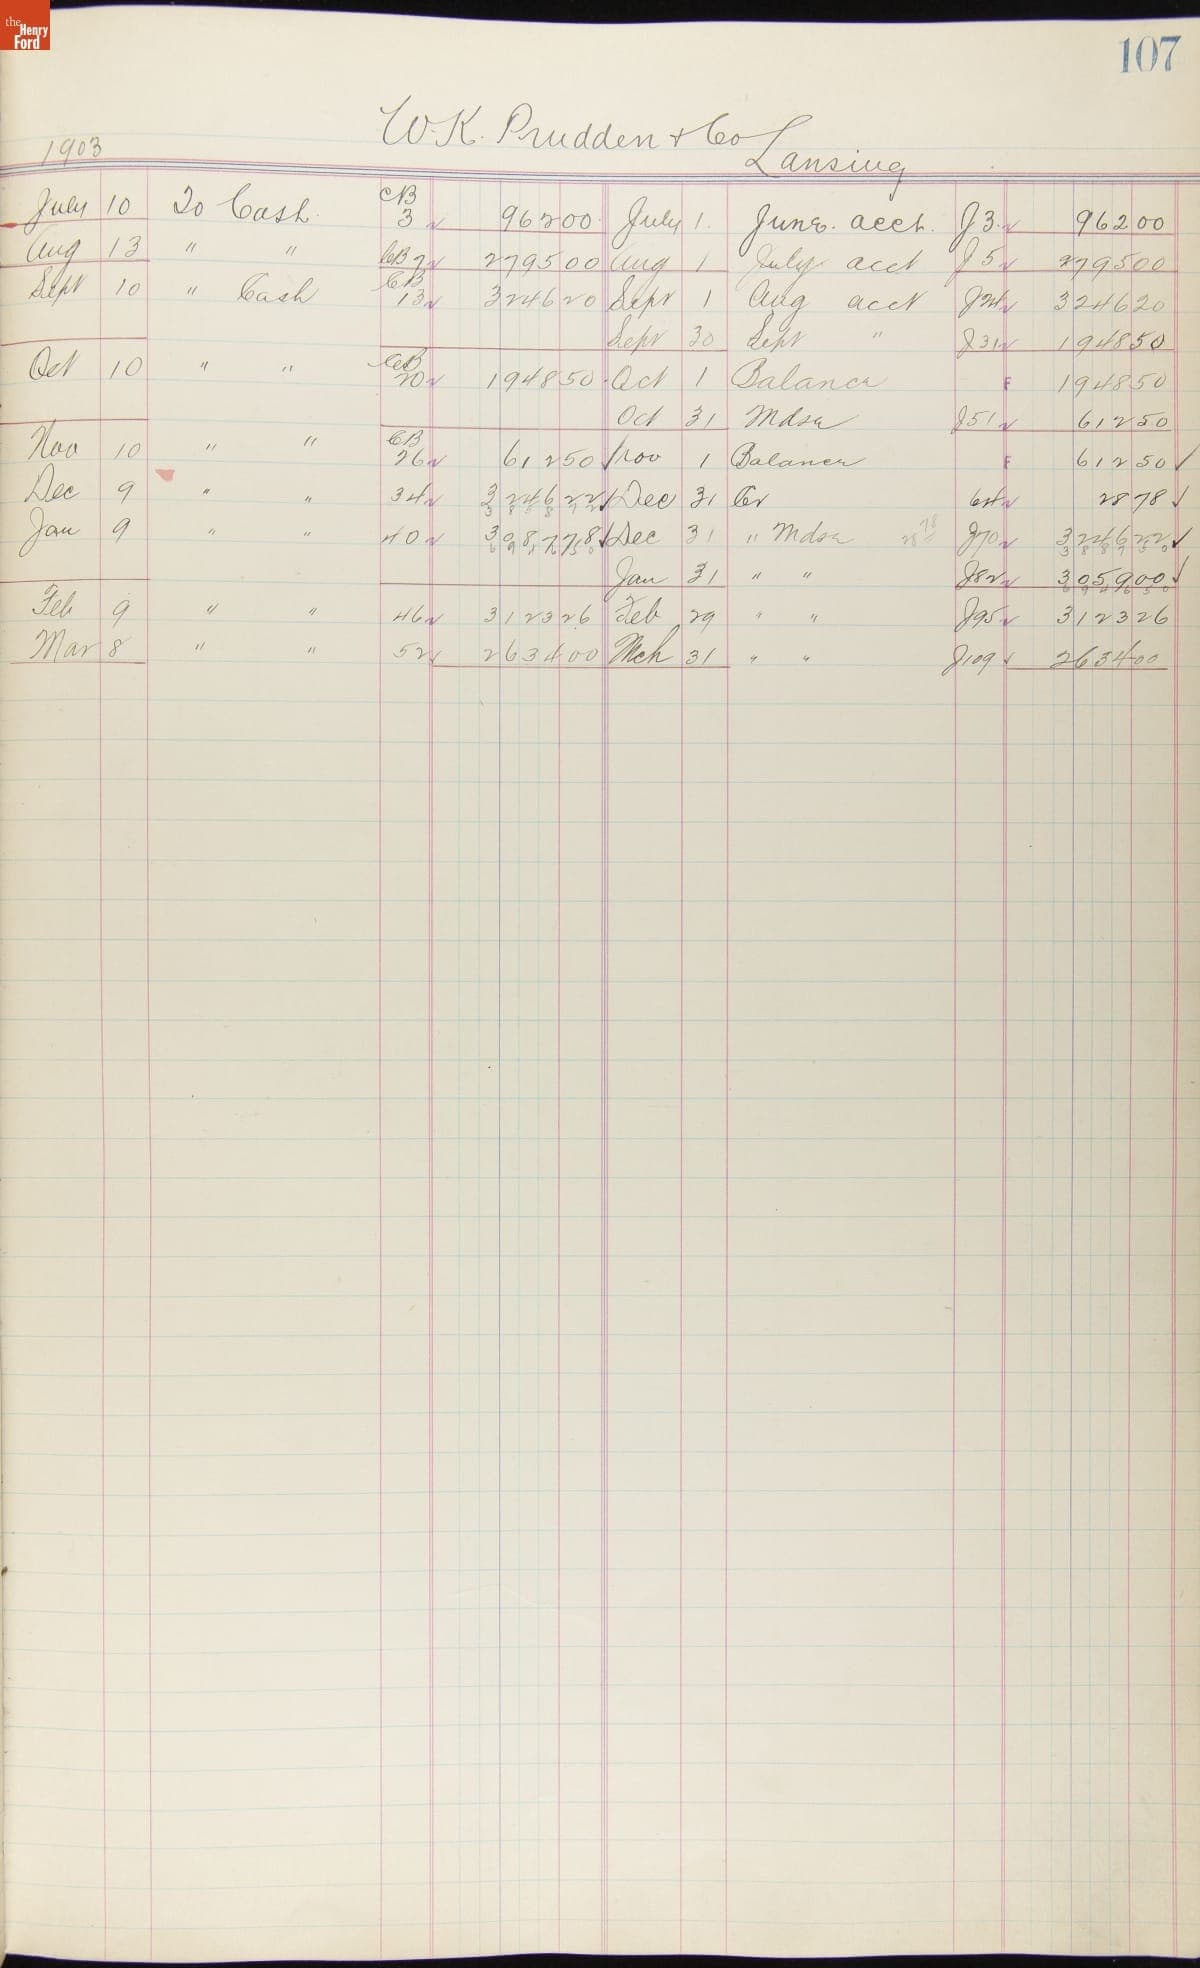 the
Henry
Ford
107
W.K. Prudden & Co
Lansing
1903
July 10 To Cash. CB 3 96200 July 1. June. acct. J3. 96200
Aug 13 " " CB 7 279500 Aug 1 July acct J5 279500
Sept 10 " Cash CB 13 324620 Sept 1 Aug acct J24 324620
Sept 30 Sept " J31 194850
Oct 10 " " CB 20 194850 Oct 1 Balance F 194850
Oct 31 Mdse J51 61250
Nov 10 " " CB 26 61250 Nov 1 Balance F 61250
Dec 9 " " 34 324622 Dec 31 Cr 64 2878
Jan 9 " " 40 308778 Dec 31 " Mdse 2878 J70 324622
Jan 31 " " J82 305900
Feb 9 " " 46 312326 Feb 29 " " J95 312326
Mar 8 " " 52 263400 Mch 31 " " J109 263400